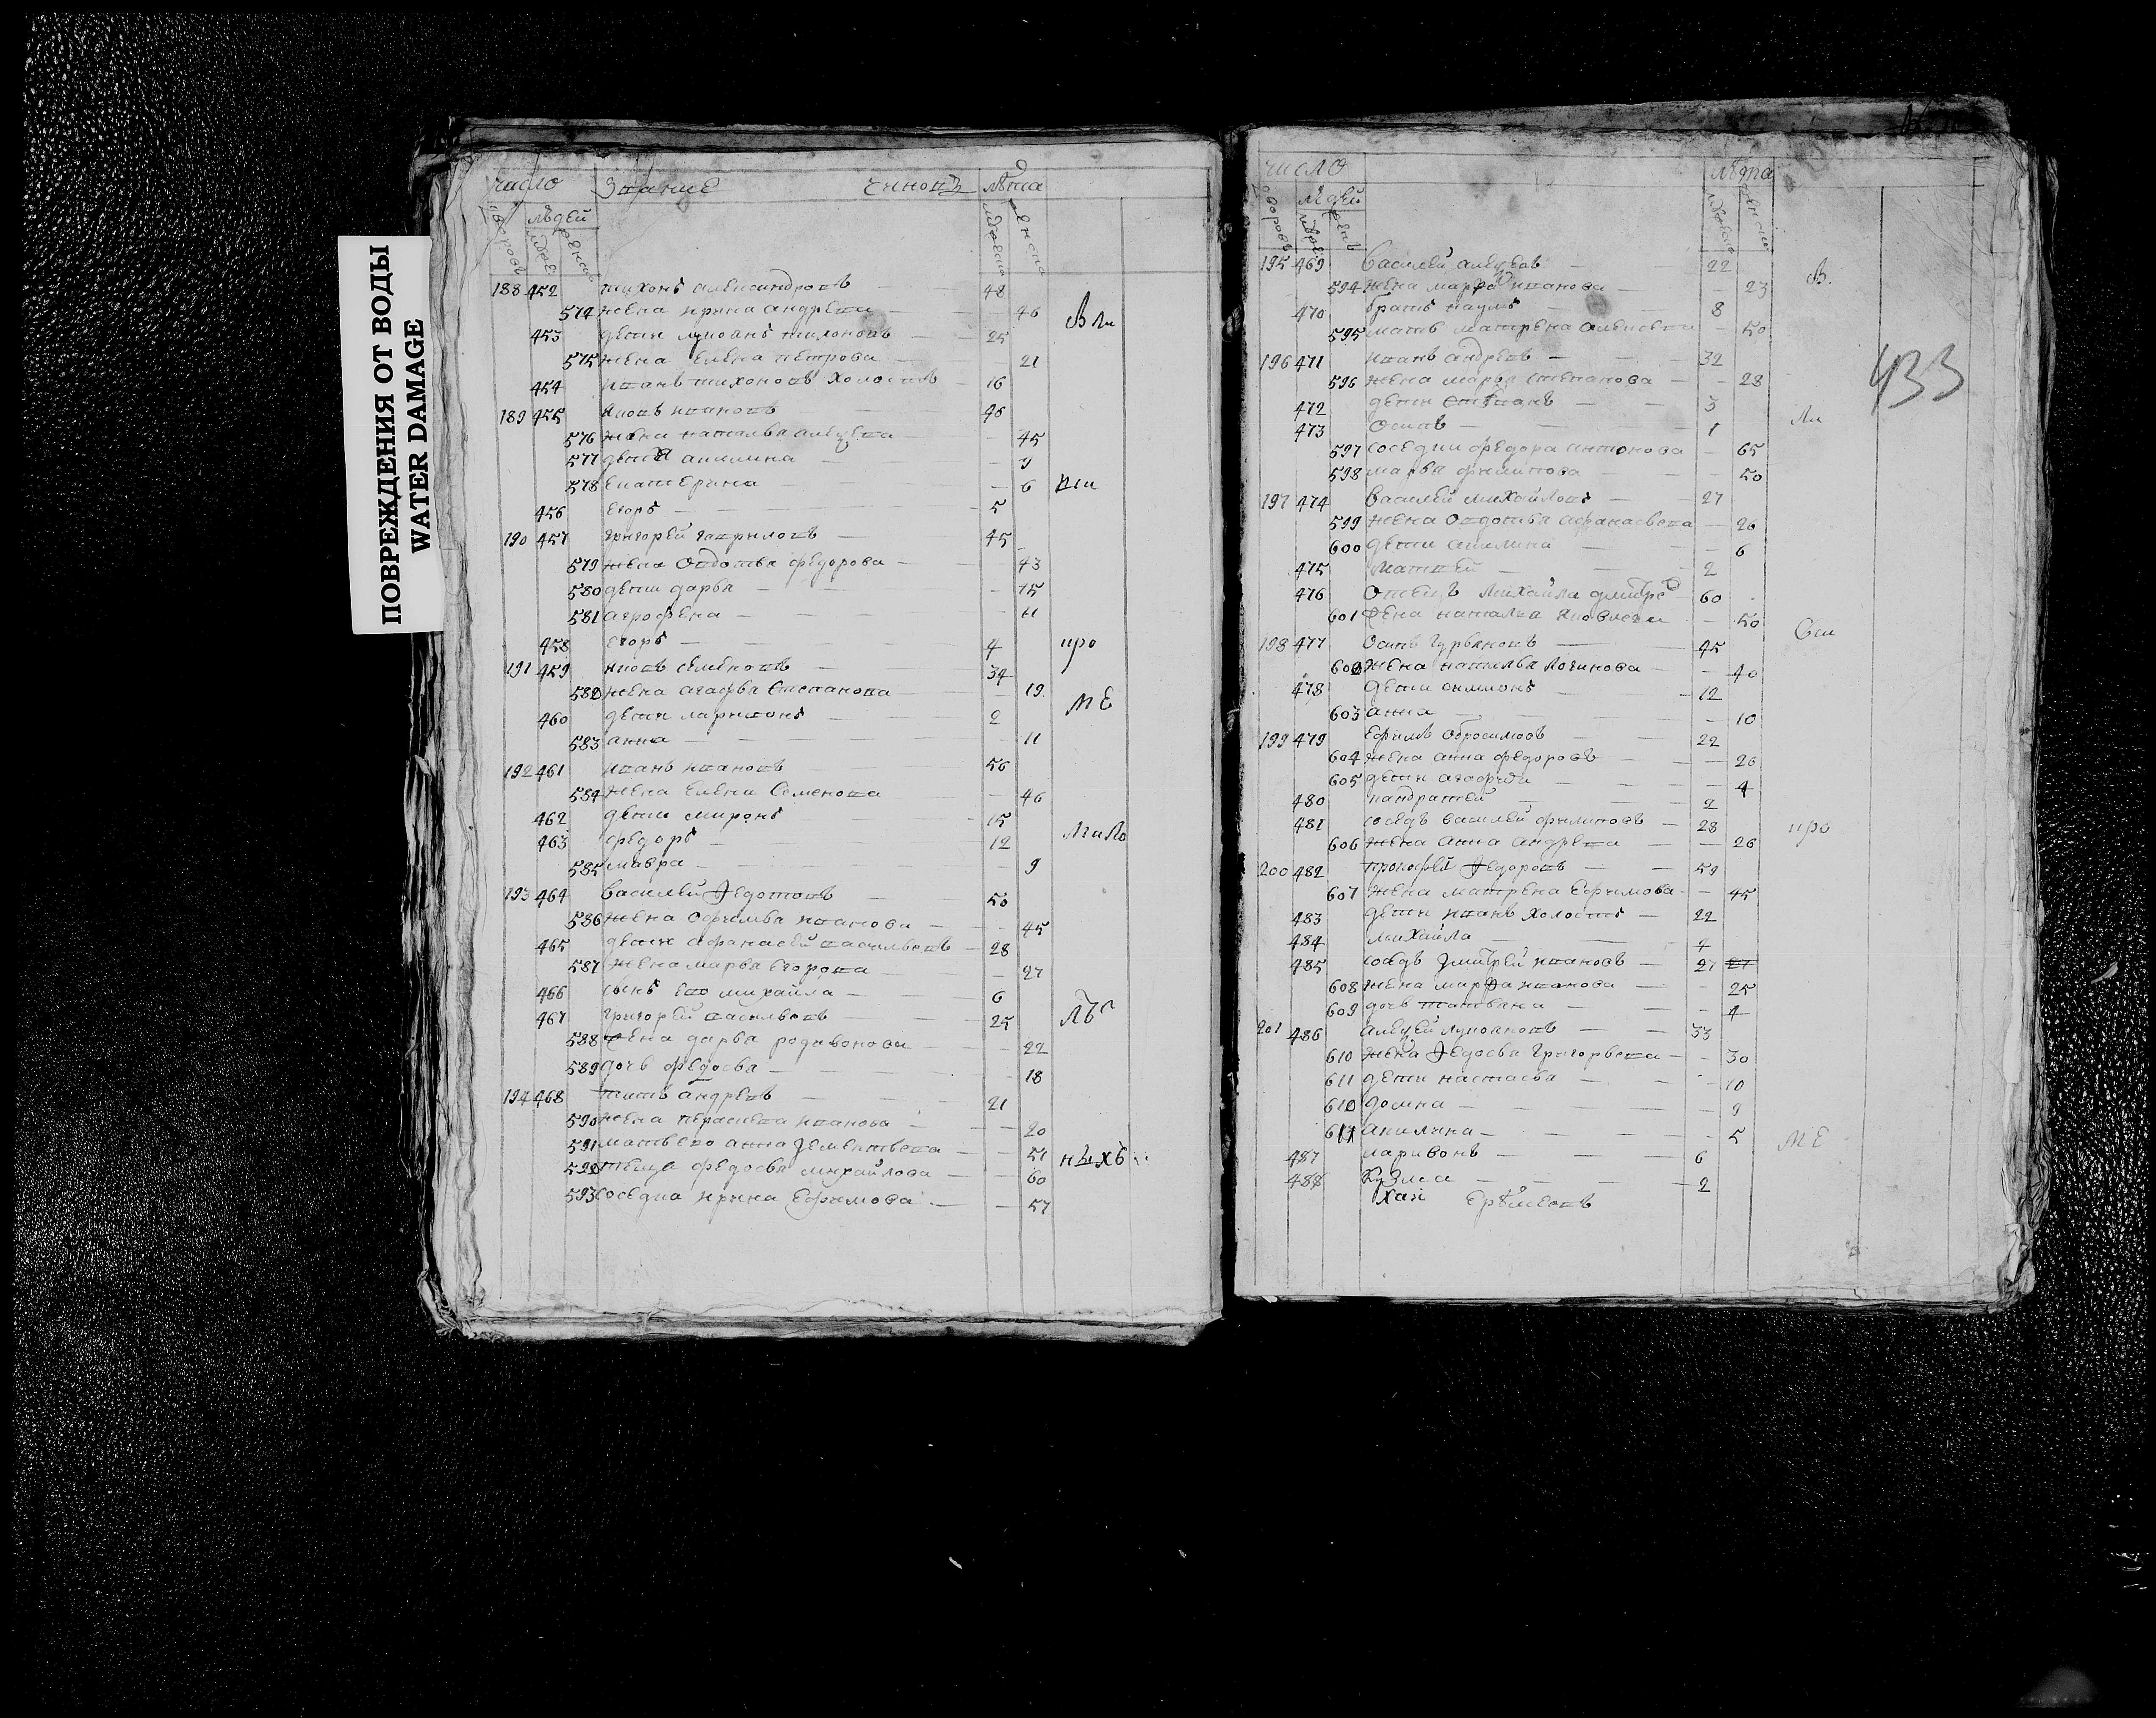 ПОВРЕЖДЕНИЯ ОТ ВОДЫ
WATER DAMAGE
число Звание чиновъ лѣта
людей
188 452 тихонъ александровъ 48
574 жена ирина андреева 46
453 дети лукоянъ тихоновъ 25
575 жена елена петрова 21
454 иванъ тихоновъ холостъ 16
189 455 яковъ ивановъ 46
576 жена наталья алеѯева 45
577 дети акилина 9
578 екатерина 6
456 егоръ 5
190 457 григорей гавриловъ 45
579 жена овдотья федорова 43
580 дети дарья 15
581 агрофена 11
458 егоръ 4 про
191 459 яковъ семеновъ 34
582 жена агафья степанова 19
460 дети ларивонъ 2 МЕ
583 анна 11
192 461 иванъ ивановъ 56
584 жена елена семенова 46
462 дети миронъ 15
463 федоръ 12
585 мавра 9
193 464 василей федотовъ 50
586 жена офимья иванова 45
465 дети афанасей васильевъ 28
587 жена марья егорова 27
466 сынъ ево михайла 6
467 григорей васильевъ 25
588 жена дарья родивонова 22
589 дочь федосья 18
194 468 титъ андреевъ 21
590 жена парасковья иванова 20
591 мать ево анна дементьева 51
592 теща федосья михайлова 60
593 соседка ирина ефимова 57
число лѣта
людей
195 469 василей алеѯеевъ 22
594 жена марфа иванова 23
470 братъ наумъ 8
595 мать матрена алексеева 50
433
196 471 иванъ андреевъ 32
596 жена марья степанова 28
472 дети степанъ 3
473 осипъ 1
597 соседки федора антонова 65
598 марья филипова 50
197 474 василей михайловъ 27
599 жена овдотья афанасьева 26
600 дети акилина 6
475 матвей 2
476 отецъ михайла дмитре 60
601 жена наталья яковлева 50
198 477 осипъ гурьяновъ 45
602 жена наталья логинова 40
478 дети филипъ 12
603 анна 10
199 479 ефимъ обросимовъ 22
604 жена анна федоровъ 26
605 дети агафия 4
480 кандратей 2
481 соседъ василей филиповъ 28 про
606 жена анна андреева 26
200 482 прокофей федоровъ 59
607 жена матрена ефимова 45
483 дети иванъ холостъ 22
484 михайла 4
485 соседъ дмитрей ивановъ 27 27
608 жена марфа иванова 25
609 дочь татьяна 4
201 486 алеѯей лукояновъ 33
610 жена федосья григорьева 30
611 дети настасья 10
610 домна 9
611 акилина 5 МЕ
487 ларивонъ 6
488 кузма 2